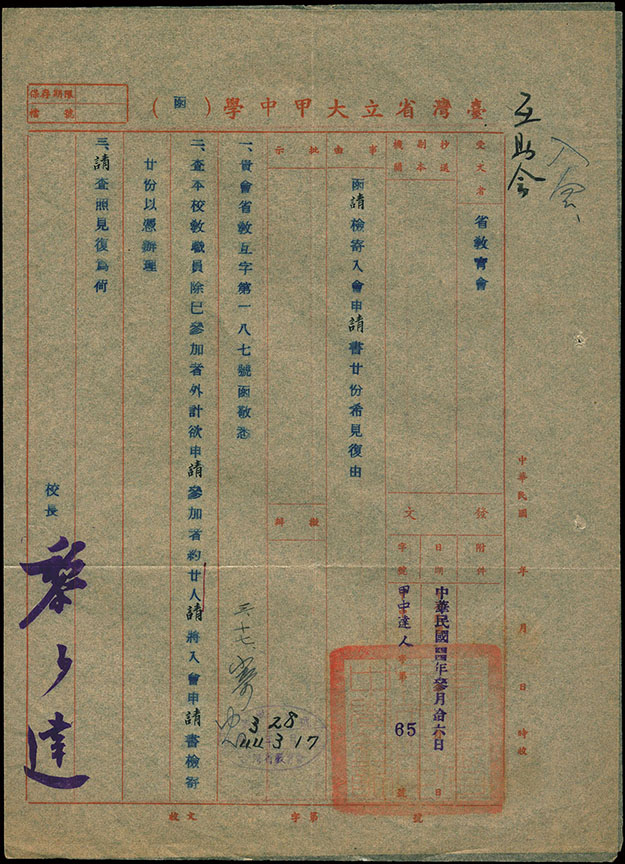 臺灣省立大甲中學(函)
保存期限
檔號
入會
互助會
受文者
省教育會
抄送
副本
機關
事由
函請檢寄入會申請書廿份希見復由
批示
擬辦
發文
附件
日期
中華民國四四年參月拾六日
字號
甲中達人字第65號
中華民國 年 月 日 時收
一、貴會省教互字第一八七號函敬悉
二、查本校教職員除已參加者外計欲申請參加者約廿人請將入會申請書檢寄
廿份以憑辦理
三、請查照見復為荷
校長
黎少達
三、十七、寄
328
44 3 17
收文 字第 號